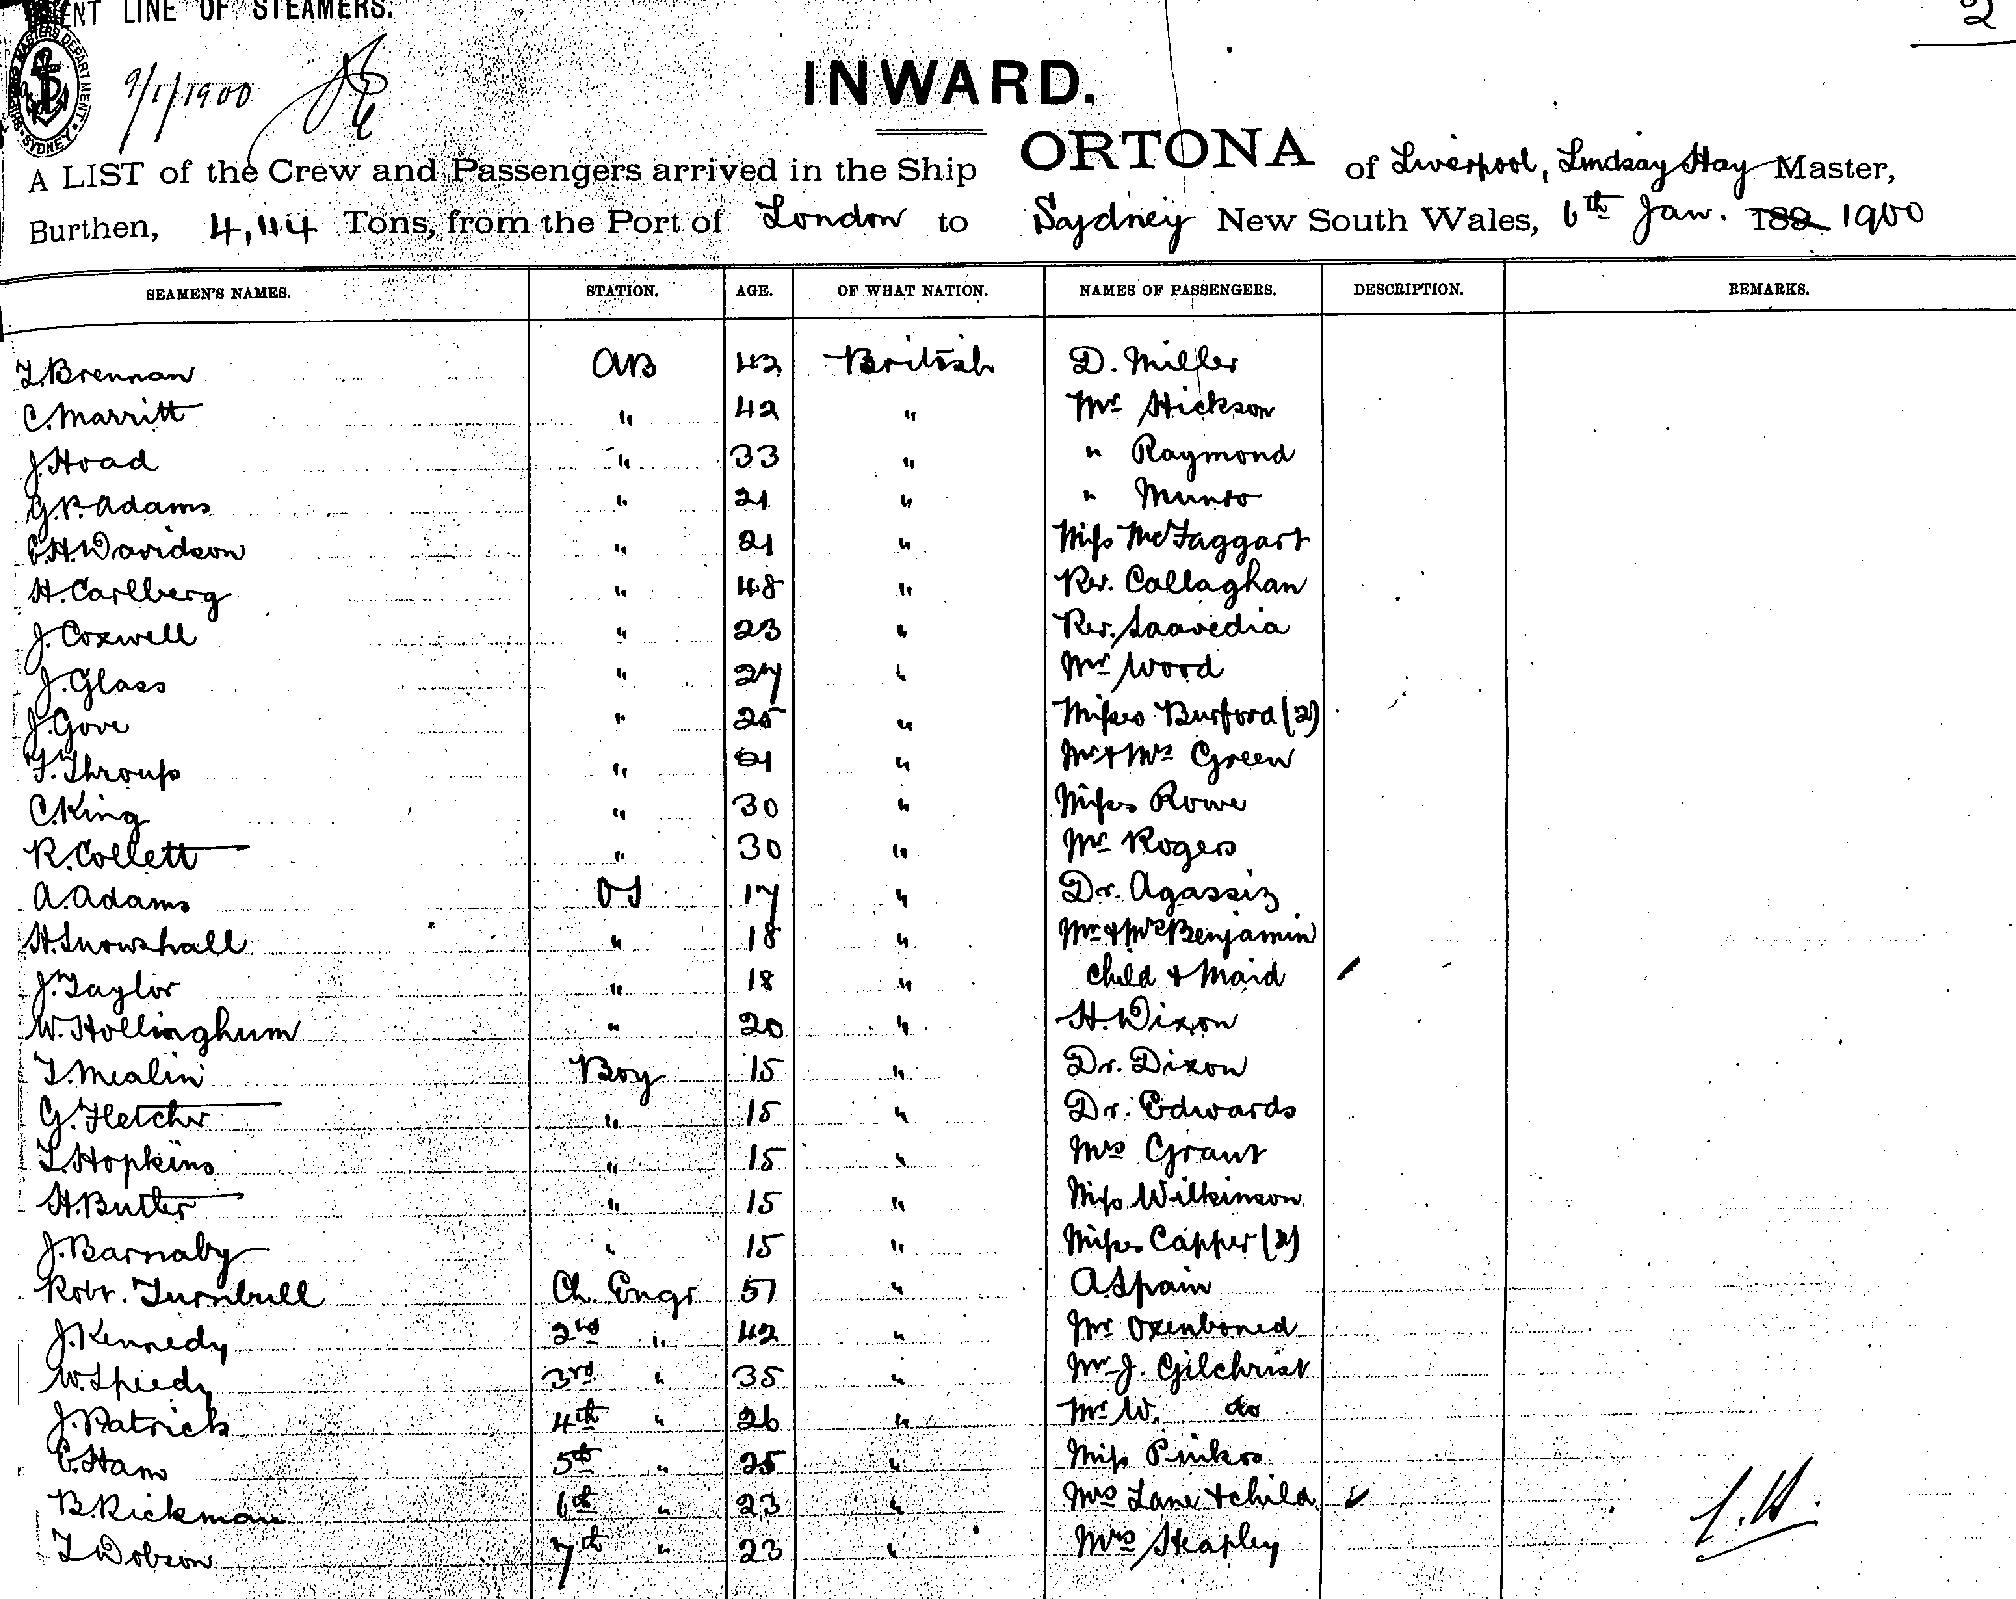 ENT LINE OF STEAMERS.
2
MASTERS DEPARTMENT SYDNEY
9/1/1900
INWARD.
A LIST of the Crew and Passengers arrived in the Ship ORTONA of Liverpool, Lindsay Hay Master,
Burthen, 4,114 Tons, from the Port of London to Sydney New South Wales, 6th Jan. 189 1900
SEAMEN'S NAMES. STATION. AGE. OF WHAT NATION. NAMES OF PASSENGERS. DESCRIPTION. REMARKS.
T. Brennan AB 43 British D. Miller
C. Marritt " 42 " Mr Hickson
J. Hoad " 33 " " Raymond
G. P. Adams " 21 " " Munro
C. H. Davidson " 21 " Miss McTaggart
H. Carlberg " 48 " Rev. Callaghan
J. Coxwell " 23 " Rev. Saavedia
J. Glass " 27 " Mr Wood
J. Gove " 25 " Misses Burford (2)
T. Throup " 21 " Mr & Mrs Green
C. King " 30 " Misses Rowe
R. Collett " 30 " Mr Rogers
A. Adams OS 17 " Dr. Agassiz
H. Snowshall " 18 " Mr & Mrs Benjamin
J. Taylor " 18 " Child & Maid
W. Hollinghum " 20 " H. Dixon
T. Mealin Boy 15 " Dr. Dixon
G. Fletcher " 15 " Dr. Edwards
T. Hopkins " 15 " Mrs Grant
H. Butler " 15 " Miss Wilkinson
J. Barnaby " 15 " Misses Capper (2)
Robt. Turnbull Ch. Engr 51 " A Spain
J. Kennedy 2nd " 42 " Mr Oxenboned
W. Speedy 3rd " 35 " Mr J. Gilchrist
J. Patrick 4th " 26 " Mr W. do
C. Ham 5th " 25 " Miss Pinkss
B. Rickman 6th " 23 " Mrs Lane & child
T. Dobson 7th " 23 " Mrs Heapley
L.H.